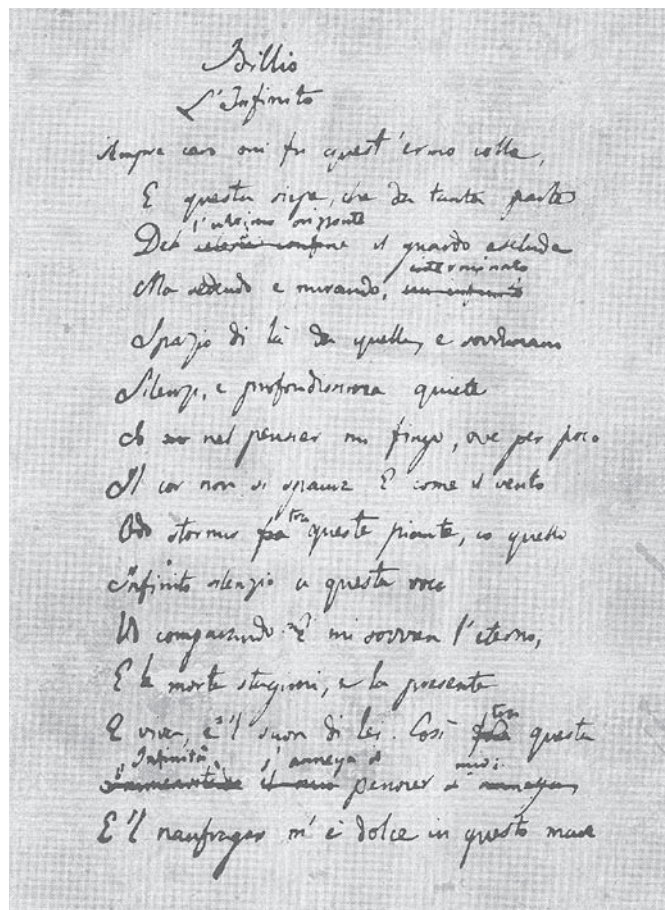 Idillio
L'Infinito
Sempre caro mi fu quest'ermo colle,
E questa siepe, che da tanta parte
l'ultimo orizzonte
Del celeste confine il guardo escluda
interminato
Ma sedendo e mirando, un infinito
Spazio di là da quella, e sovrumani
Silenzi, e profondissima quiete
Io nel pensier mi fingo, ove per poco
Il cor non si spaura E come il vento
tra
Odo stormir fra queste piante, io quello
Infinito silenzio a questa voce
Vo comparando: E mi sovvien l'eterno,
E le morte stagioni, e la presente
tra
E viva, e 'l suon di lei. Così fra questa
Infinità s'annega il mio:
Immensitade il mio pensier s'annega,
E 'l naufragar m'è dolce in questo mare